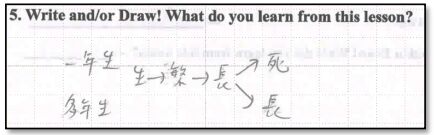 5. Write and/or Draw! What do you learn from this lesson?
一年生 生→繁→長↗死
多年生 ↘長